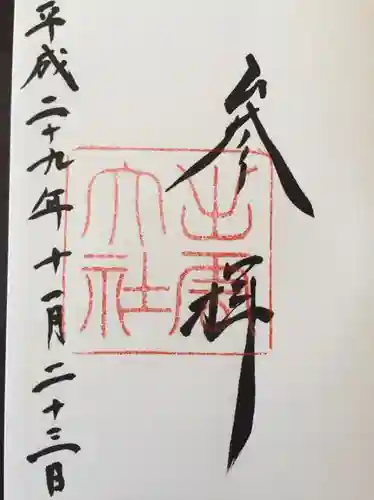 参拝
出雲大社
平成二十九年十一月二十三日